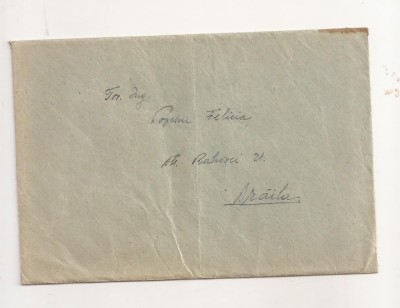 Tov. Ing.
Popescu Felicia
Str. Rahovei 21.
Brăila